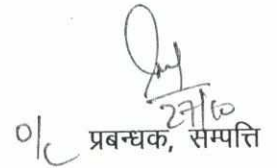 27/10
O/C प्रबन्धक, सम्पत्ति